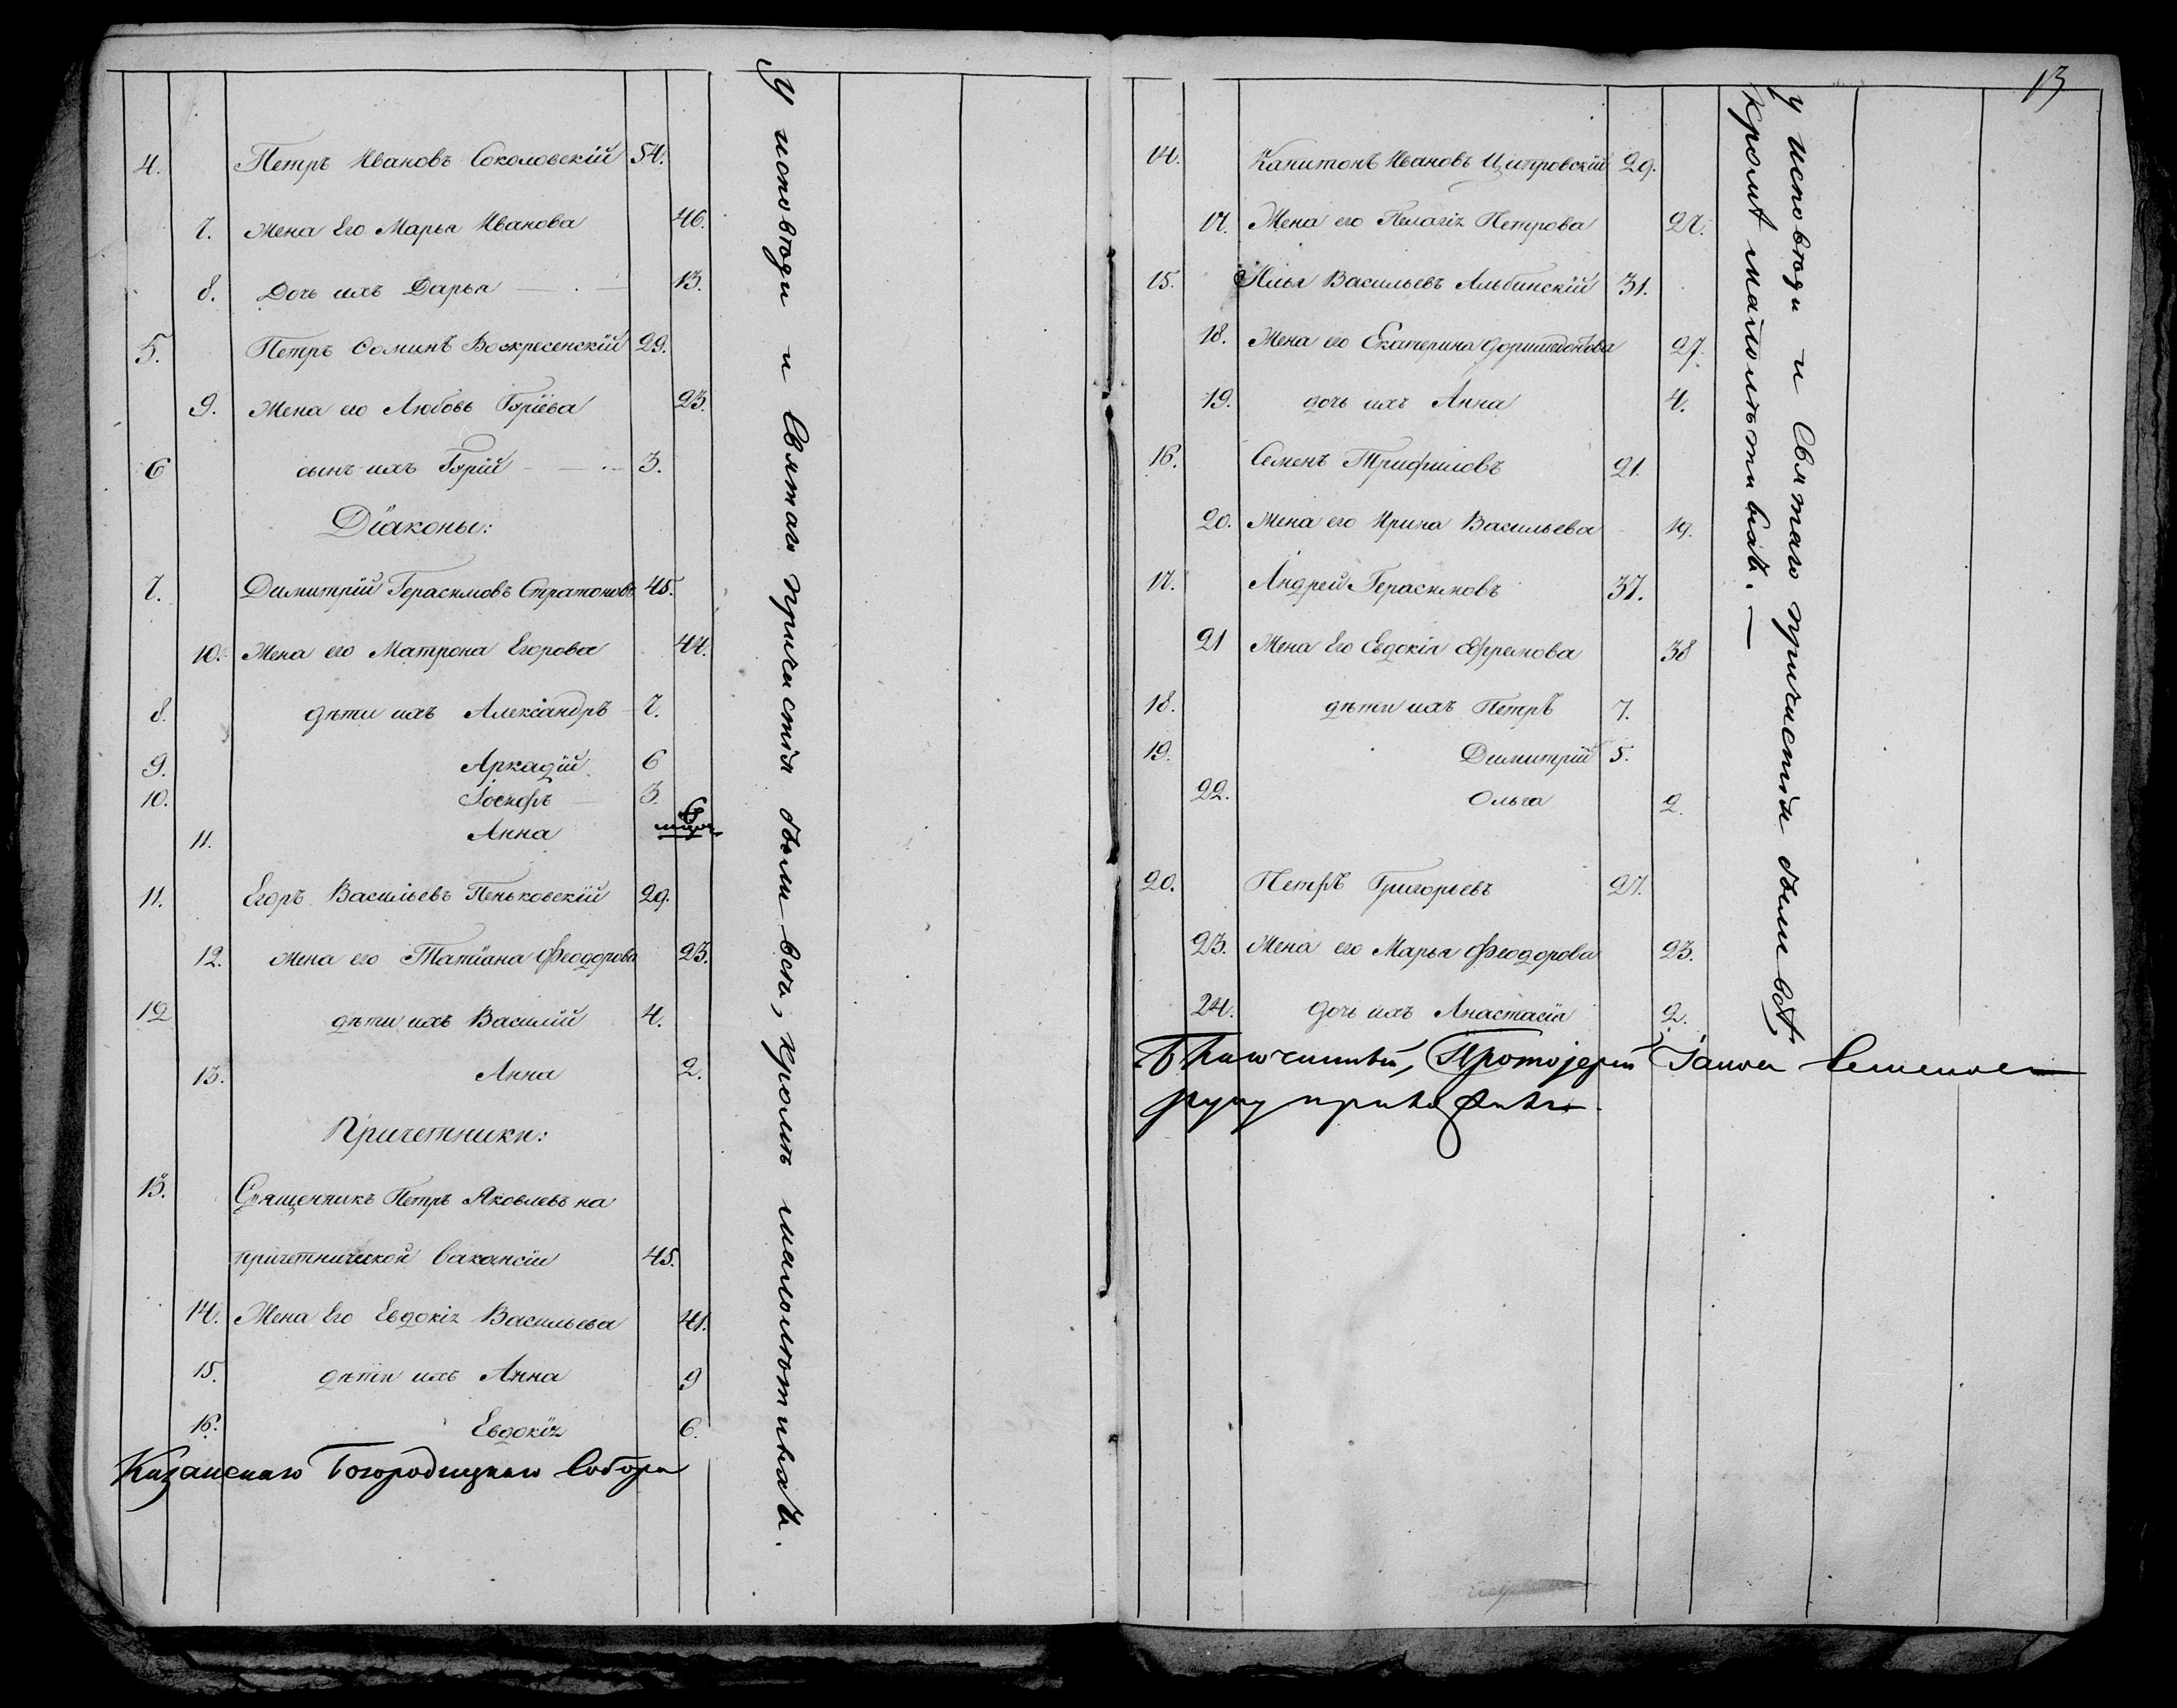 4. Петръ Ивановъ Соколовскій 54.
7. Жена Его Марья Иванова 46.
8. Дочь ихъ Дарья 13.
5. Петръ Ѳоминъ Воскресенскій 29.
9. Жена его Любовь Гурїева 23.
6 сынъ ихъ Гурїй 3.
Дїаконы:
7. Димитрїй Герасимовъ Стратоновъ 45.
10. Жена его Матрона Егорова 44.
8. дѣти ихъ Александръ 7.
9. Аркадїй 6
10. Іосифъ 3.
11. Анна 6
11. Егоръ Васильевъ Пеньковскїй 29.
12. Жена его Татїана Феодорова 23.
12 дѣти ихъ Василїй 4.
13. Анна 2.
Причетники:
13. Священникъ Петръ Яковлевъ на
причетнической вакансїи 45.
14. Жена Его Евдокія Васильева 41.
15. дѣти ихъ Анна 9
16. Евдокїя 6.
Казанскаго Богородицкаго Собора
У исповѣди и Святаго причастія были всѣ, кромѣ малолѣтныхъ.
13
14. Капитонъ Ивановъ Цитровскїй 29.
17. Жена его Пелагія Петрова 27.
15. Илья Васильевъ Альбинскїй 31.
18. Жена его Екатерина Доримедонтова 27.
19. дочь ихъ Анна 4.
16. Семенъ Трифиловъ 21.
20. Жена его Ирина Васильева 19.
17. Андрей Герасимовъ 37.
21 Жена Его Евдокія Ефремова 38
18. дѣти ихъ Петръ 7.
19. Димитрїй 5.
22. Ольга 2.
20. Петръ Григорьевъ 27.
23. Жена его Марья Феодорова 23.
24. дочь ихъ Анастасїя 2.
Благочинный, Протоіерей Іаковъ Семеновъ
руку приложилъ
У исповѣди и Святаго причастія были всѣ,
кромѣ малолѣтныхъ.